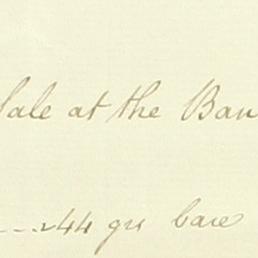 Sale at the Ban
44 grs bare